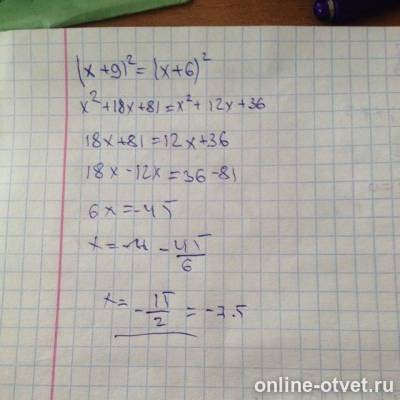 (x+9)²=(x+6)²
x²+18x+81=x²+12x+36
18x+81=12x+36
18x-12x=36-81
6x=-45
x= - 45/6
x= - 15/2 = -7.5
online-otvet.ru